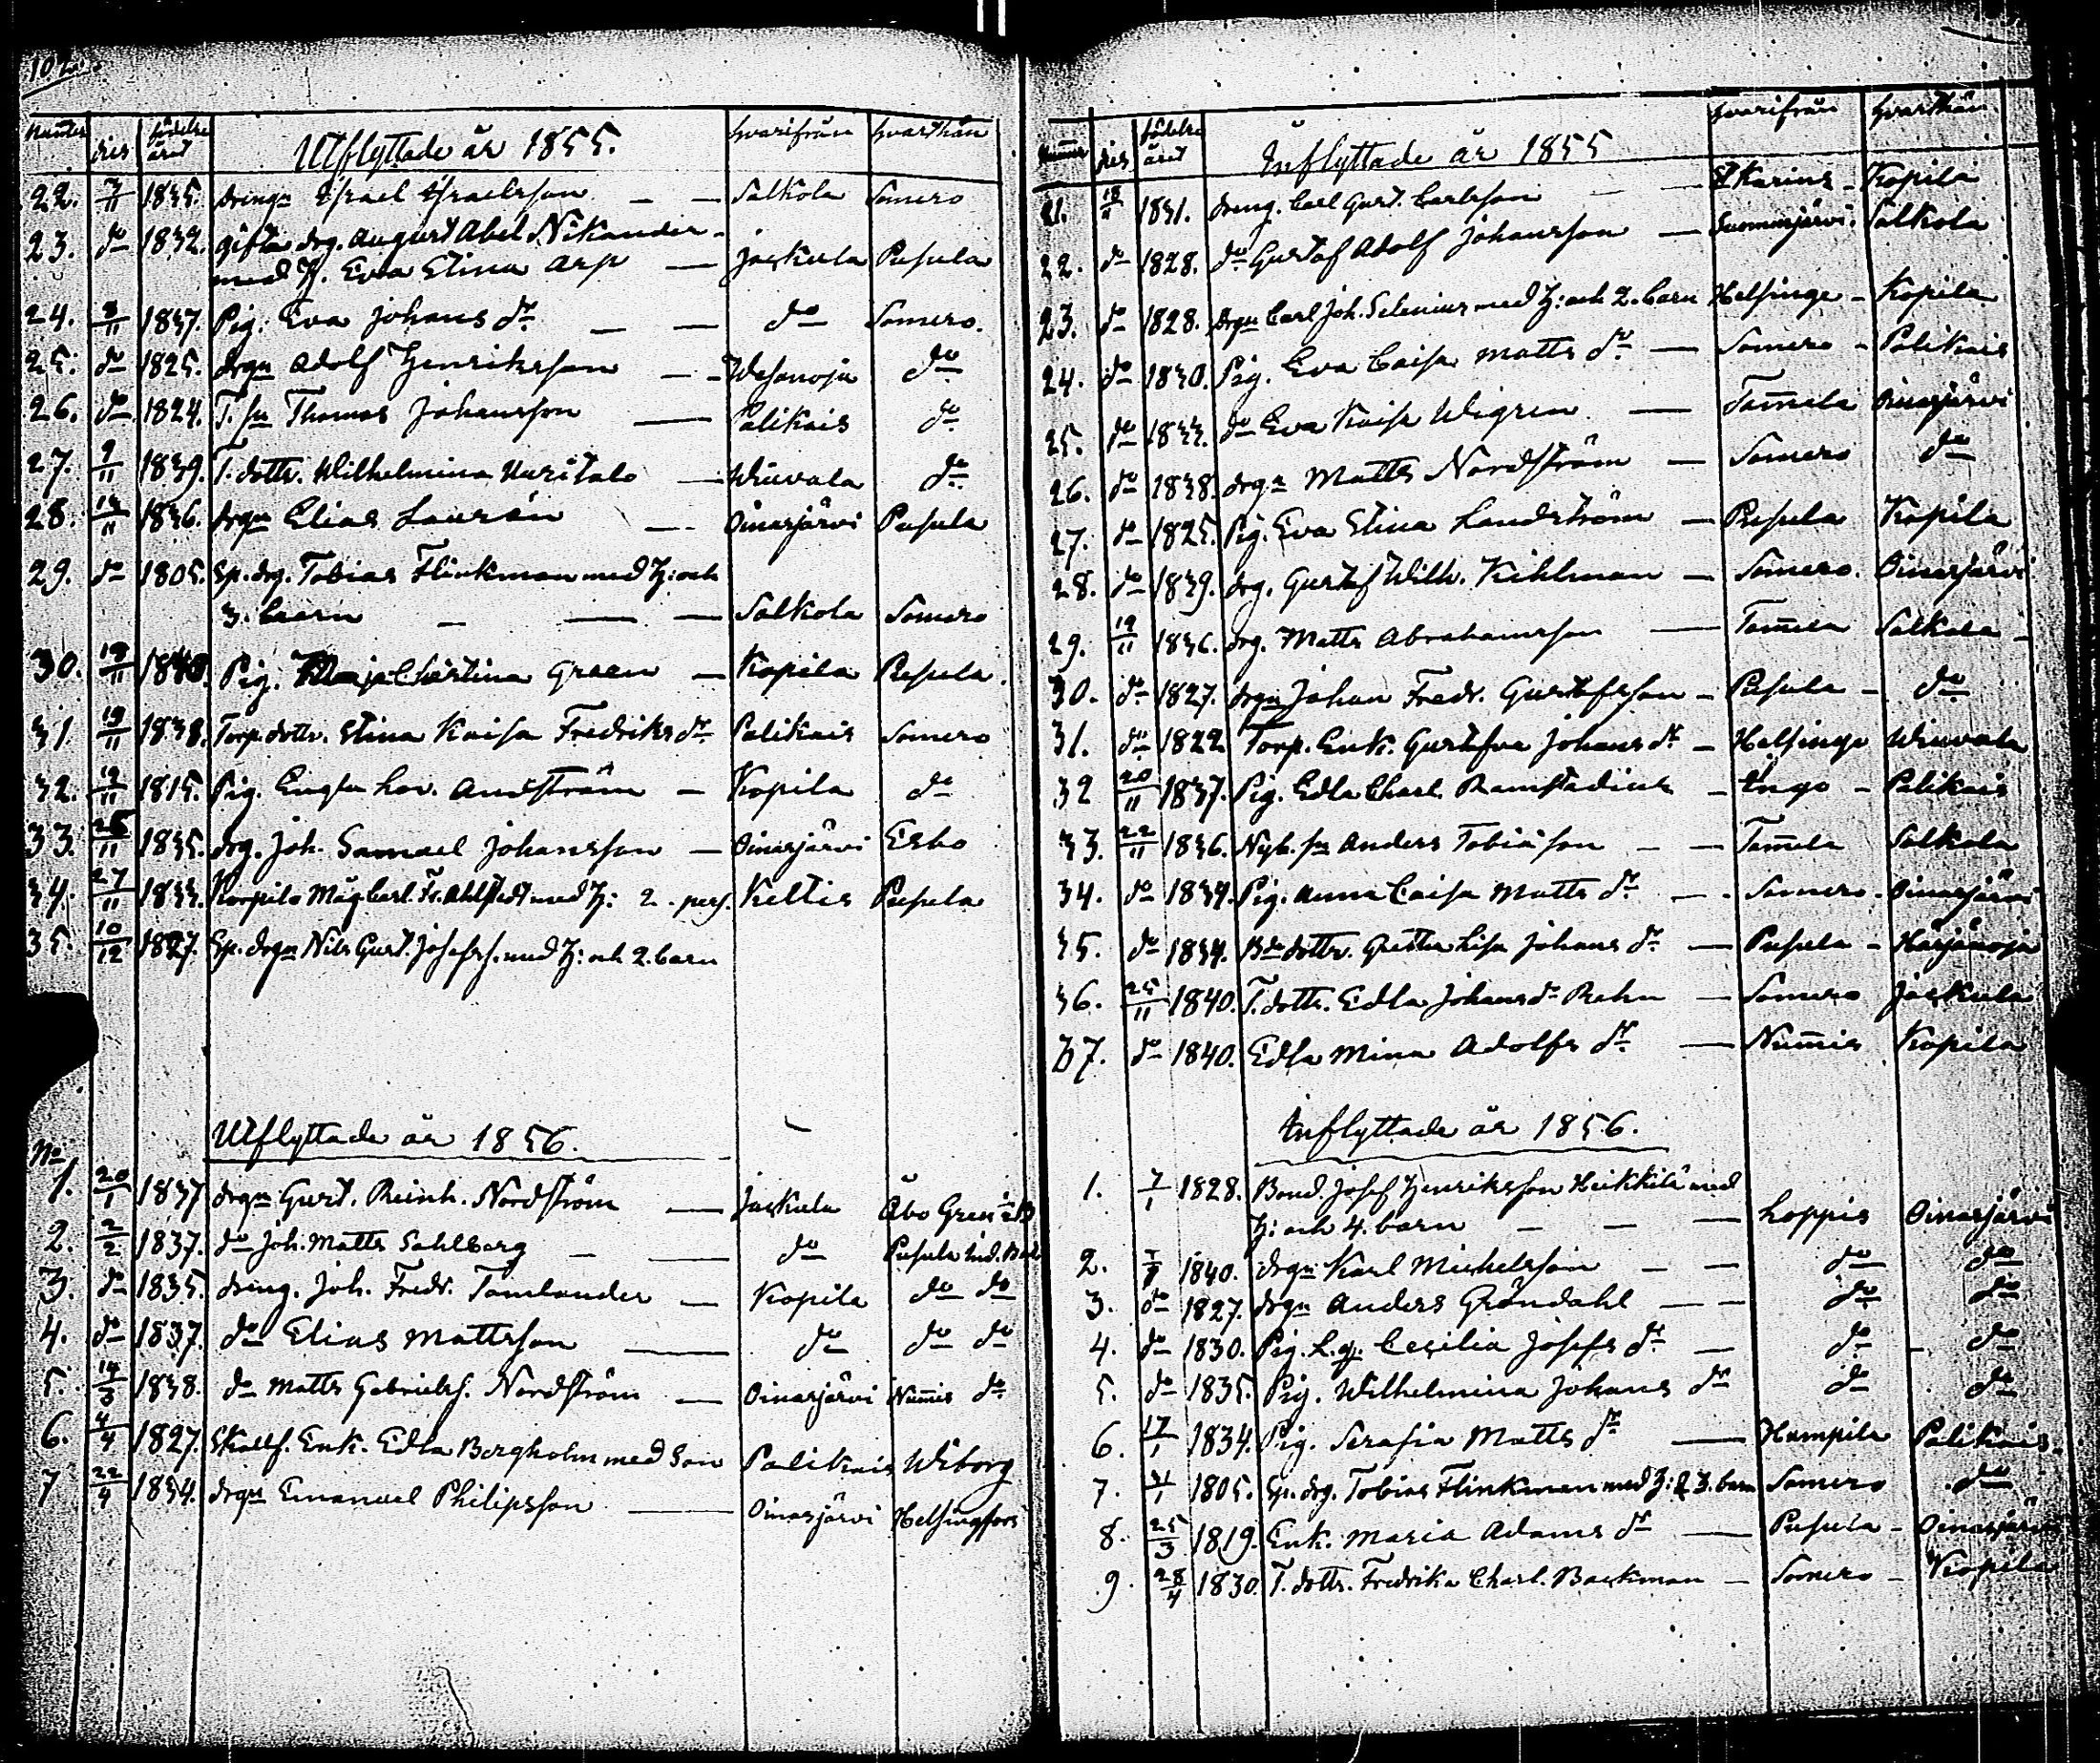 102.
Numer dies födelse året Utflyttade år 1855. hvarifrån hvarthän
22. 7/11 1835. dringn Israel Israelsson — — Salkola Somero
23. do 1832. gifta drg. August Abel Nikander -
med H. Eva Stina Arp — Jaskula Pusula
24. 8/11 1837. Pig. Eva Johans dr — — do Somero.
25. do 1825. drgn Adolf Henriksson — - Wesanoja do
26. do 1824. T. sn Thomas Johansson — Palikais do
27. 9/11 1839. T. dottr. Wilhelmina Uusitalo — Wiuvala do
28. 14/11 1836. drgn Elias Laurén — Oinasjärvi Pusula
29. do 1805. Sp. drg. Tobias Flinkman med H: och
3. barn — — — Salkola Somero
30. 18/11 1840. Pig. Maja Christina Green — Kopila Pusula.
31. 19/11 1838. Torp. dottr. Stina Kaisa Fredriks dr. Palikais Somero
32. 19/11 1815. Pig. Engla Lov. Andström — Kopila do
33. 25/11 1835. drg. Joh. Samuel Johansson — Oinasjärvi Esbo
34. 27/11 1833. Korpilo Måg Carl Fr. Ahlstedt med H: 2. pers. Keltis Pusula
35. 10/12 1827. Sp. drgn Nils Gust. Josefss. med H: och 2. barn
No Utflyttade år 1856.
1. 20/1 1837 drgn Gust. Reinh. Nordström — Jaskula Åbo Gren
2. 2/2 1837. do Joh. Matts Sahlberg — — do Pusula Ind.
3. do 1835. dreng. Joh. Fredr. Tamlander — Kopila do do
4. do 1837. do Elias Mattsson — do do do
5. 14/3 1838. do Matts Gabrielss. Nordström — Oinasjärvi Num̄is do
6. 4/4 1827. Skallf. Enk. Edla Bergholm med Son Palikais Wiborg
7 22/4 1834. drgn Emanuel Philipsson — Oinasjärvi Helsingfors
Num̄er dies födelse året Inflyttade år 1855 hvarifrån hvarthän
21. 18/11 1831. dreng. Carl Gust. Carlsson — — St Karins - Kopila
22. do 1828. do Gustaf Adolf Johansson — Suomusjärvi. Salkola
23. do 1828. drgn Carl Joh. Selenius med H: och 2. barn Helsinge - Kopila
24. do 1830. Pig. Eva Caisa Matts dr — Somero - Palikais
25. do 1833. do Eva Kaisa Wigren — Tam̄ela Oinasjärvi
26. do 1838. drgn Matts Nordström — Somero do
27. do 1825. Pig. Eva Stina Landström — Pusula Kopila
28. do 1839. drg. Gustaf Wilh. Kihlman — Somero. Oinasjärvi
29. 19/11 1836. drg. Matts Abrahamsson — Tam̄ela Salkola -
30. do 1827. drgn Johan Fredr. Gustafsson - Pusula - do
31. do 1822 Torp. Enk. Gustafva Johans dr - Helsinge Wiuvala
32 20/11 1837. Pig. Edla Charl. Ramstadius - Ingo - Palikais
33. 22/11 1836. Nyb. sn Anders Tobiason — — Tam̄ela Salkola
34. do 1834. Pig. Anna Caisa Matts dr — - Somero - Oinasjärvi
35. do 1834. Bde dottr. Gretha Lisa Johans dr — Pusula - Härjänoja
36. 25/11 1840. T. dottr. Edla Johansdr Rehn — Somero Jaskula
37. do 1840. Edla Mina Adolfs dr — Num̄is Kopila
Inflyttade år 1856.
1. 7/1 1828. Bond. Josef Henriksson Heikkilä med
H: och 4. barn — — — Loppis Oinasjärvi
2. 1840. drgn Karl Michelsson — — do do
3. do 1827. drgn Anders Gröndahl — — do do
4. do 1830. Pig. L. g. Cecilia Josefs dr — do - do
5. do 1835. Pig. Wilhelmina Johans dr do do
6. 17/1 1834. Pig. Serafia Matts dr — Humpila Palikais
7. 31/1 1805. Sp. drg. Tobias Flinkman med H: & 3. barn Somero do
8. 25/3 1819. Enk. Maria Adams dr — Pusula - Oinasjärvi
9. 28/4 1830. T. dottr. Fredrika Charl. Backman — Somero - Kopila